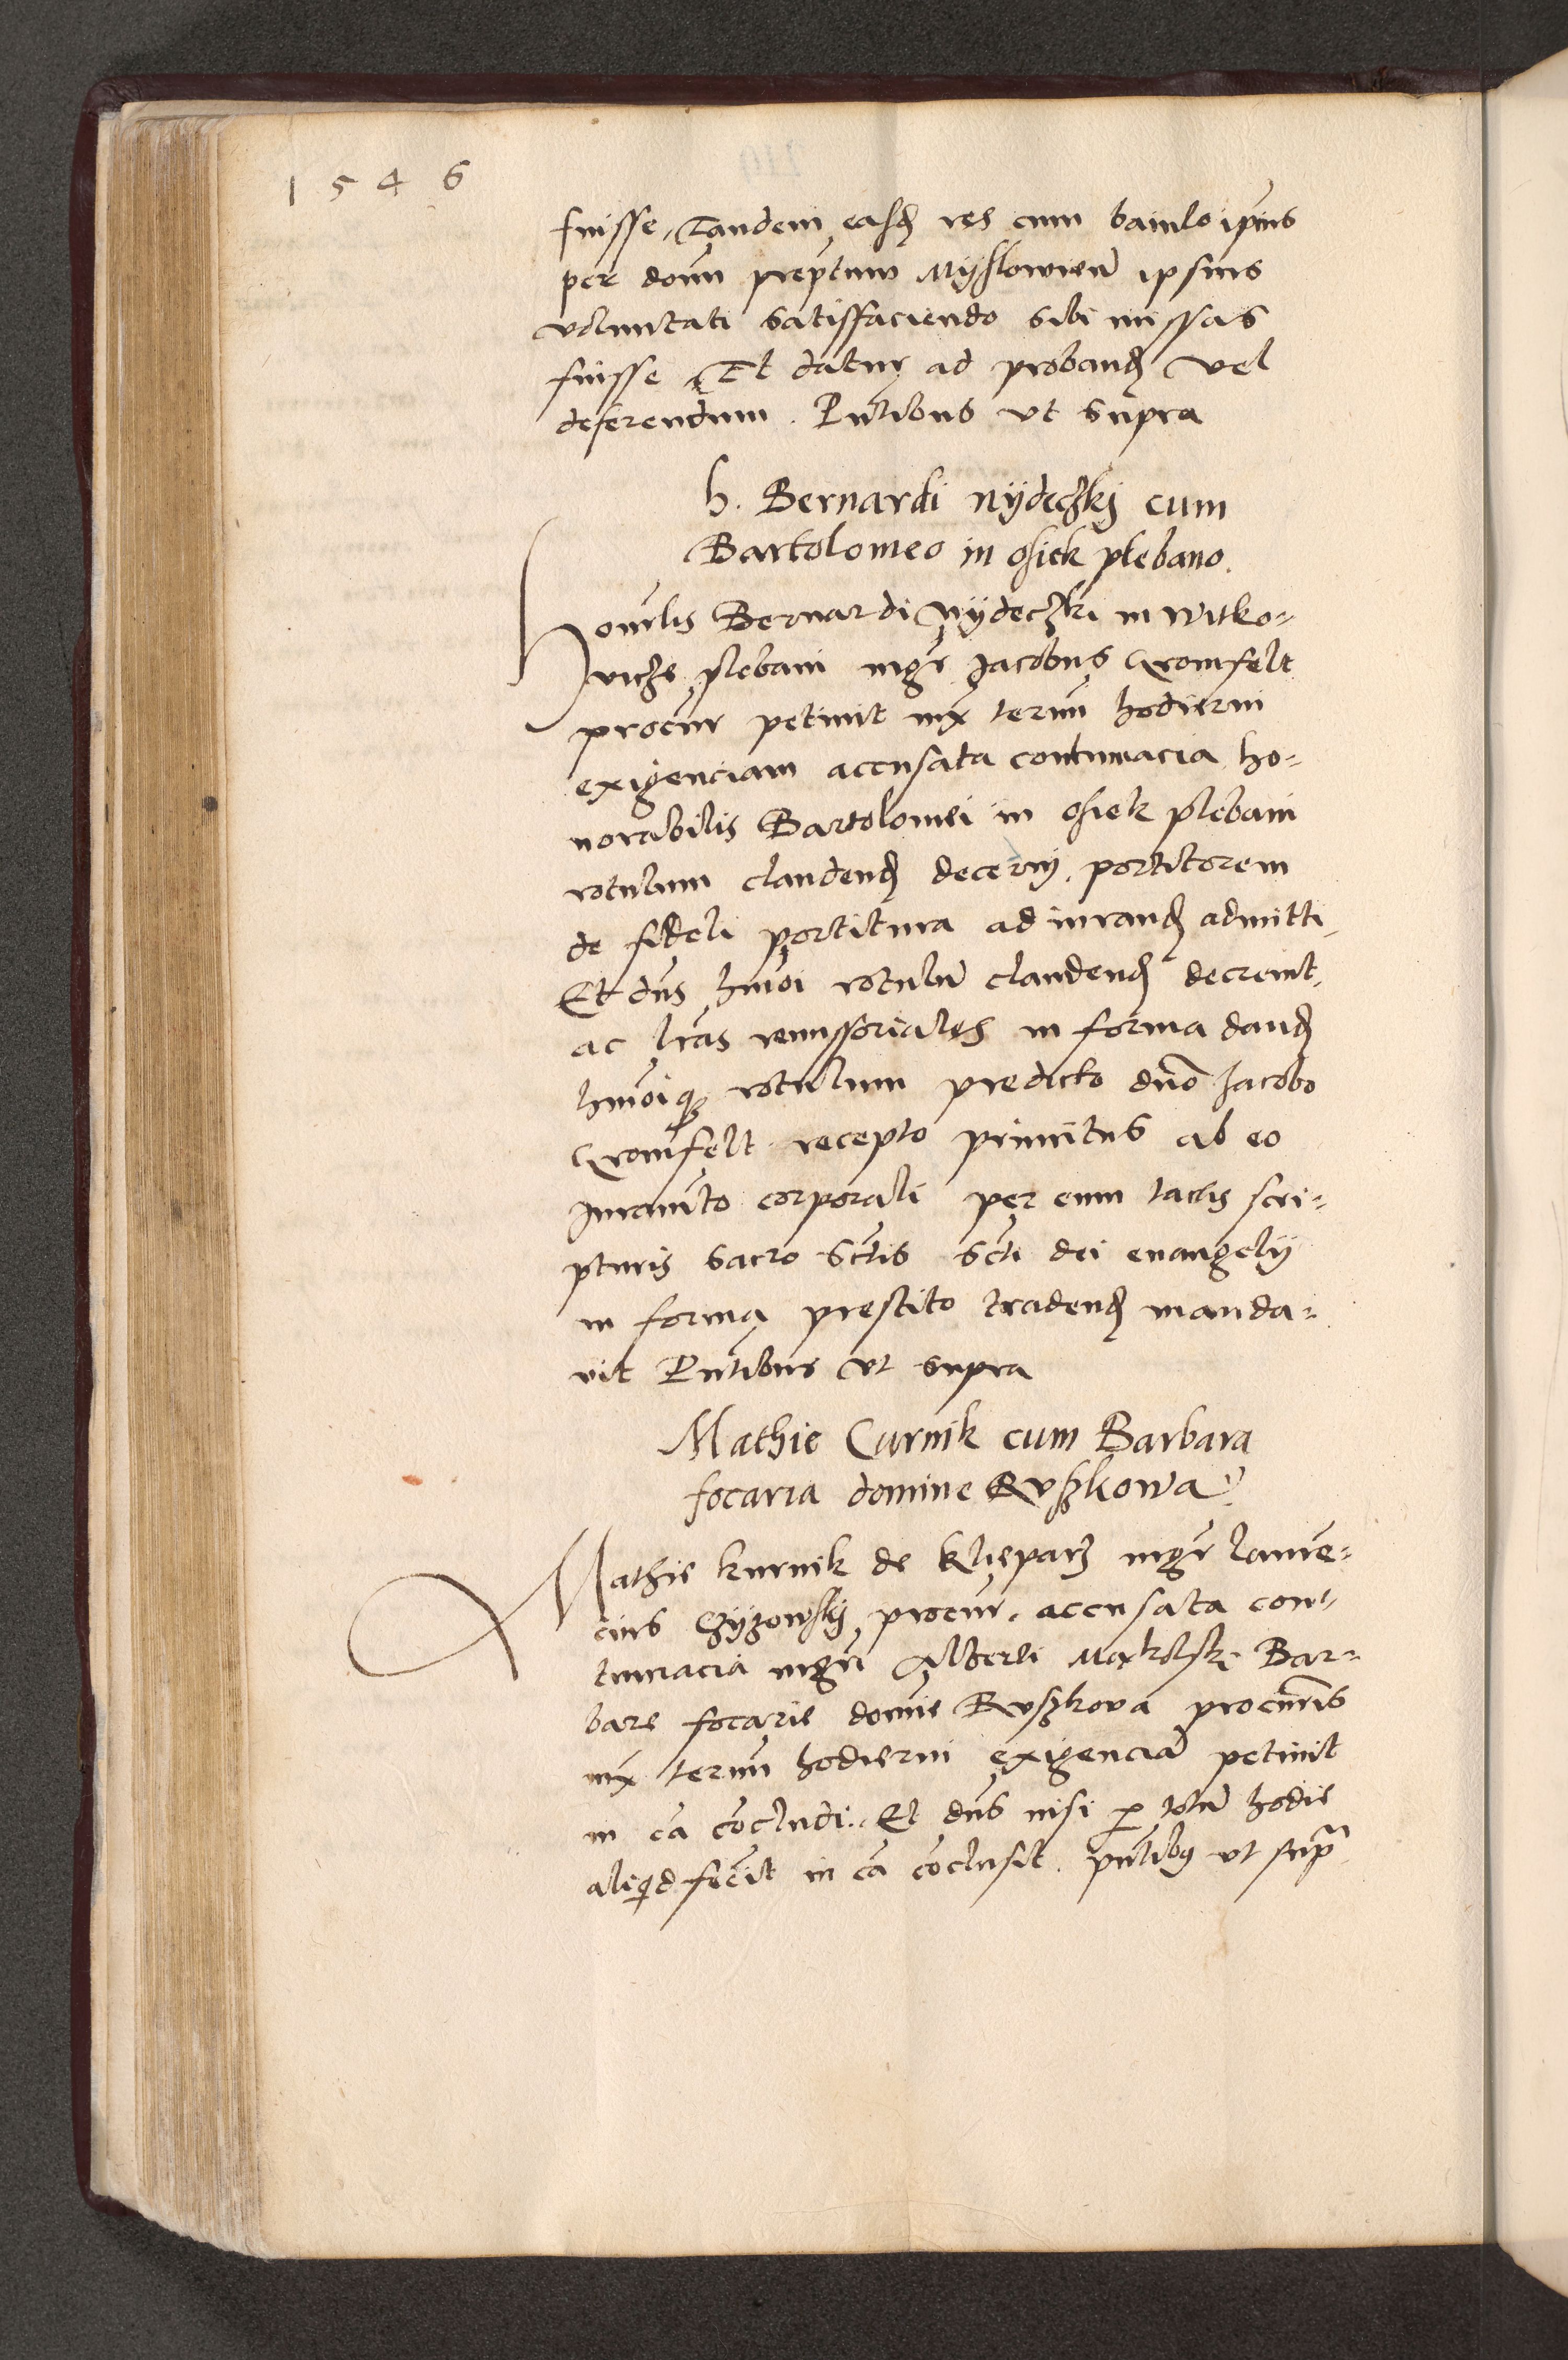 1546
fuisse, Tandem easd res cum baiulo ipius
per dnum preptum Mÿslowien ipsius
voluntati satisfaciendo sibi missas
fuisse Et datur ad proband vel
deferendum. Pntibus vt supra
h. Bernardi Nÿdeczkj cum
Bartolomeo in osiek plebano.
Honrlis Bernardi Nÿdeczki in Witko-
vicze plebani mgr Jacobus Gromfelt
procur petiuit iux termi hodierni
exigenciam accusata contumacia ho-
norabilis Bartolomei in osiek plebani
rotulum claudend decerni, portitorem
de fideli portitura ad iurand admitti,
Et dns hmoi rotulu claudend decreuit,
ac lras remissoriales in forma dand
hmoiq rotulum predicto dno Jacobo
Gromfelt recepto primitus ab eo
Juramto corporali per eum tactis scri-
pturis sacro sctis scti dei euangelÿ
in forma prestito tradend manda-
vit Pntibus vt supra
Mathie Curnik cum Barbara
focaria domine Ruszkowa
Mathie kurnik de Klieparz mgr lauren-
cius procur, accusata con-
tumacia mgri Alberti Bar-
bare focarie domine Ruszkova procuris
iux termi hodierni exigencia petiuit
in ca coludi. Et dns nisi p totu hodie
aliqid fecit in ca coclusit. pntibus vt supra